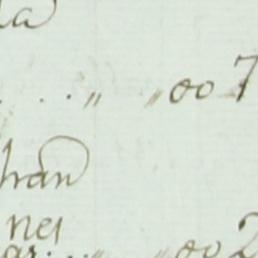 . . . „ „ 00 7
han
nes
ar. . . „ „ 00 2